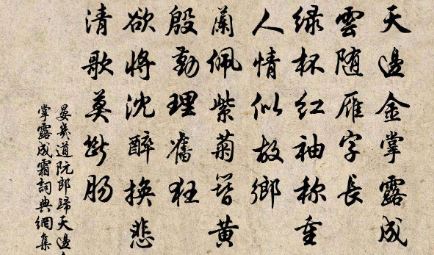 天邊金掌露成
雲随雁字長
绿杯红袖称重
人情似故鄉
蘭佩紫菊簪黄
殷勤理舊狂
欲将沈醉换悲
清歌莫断腸
晏幾道阮郎歸天邊
掌露成霜詞典網集